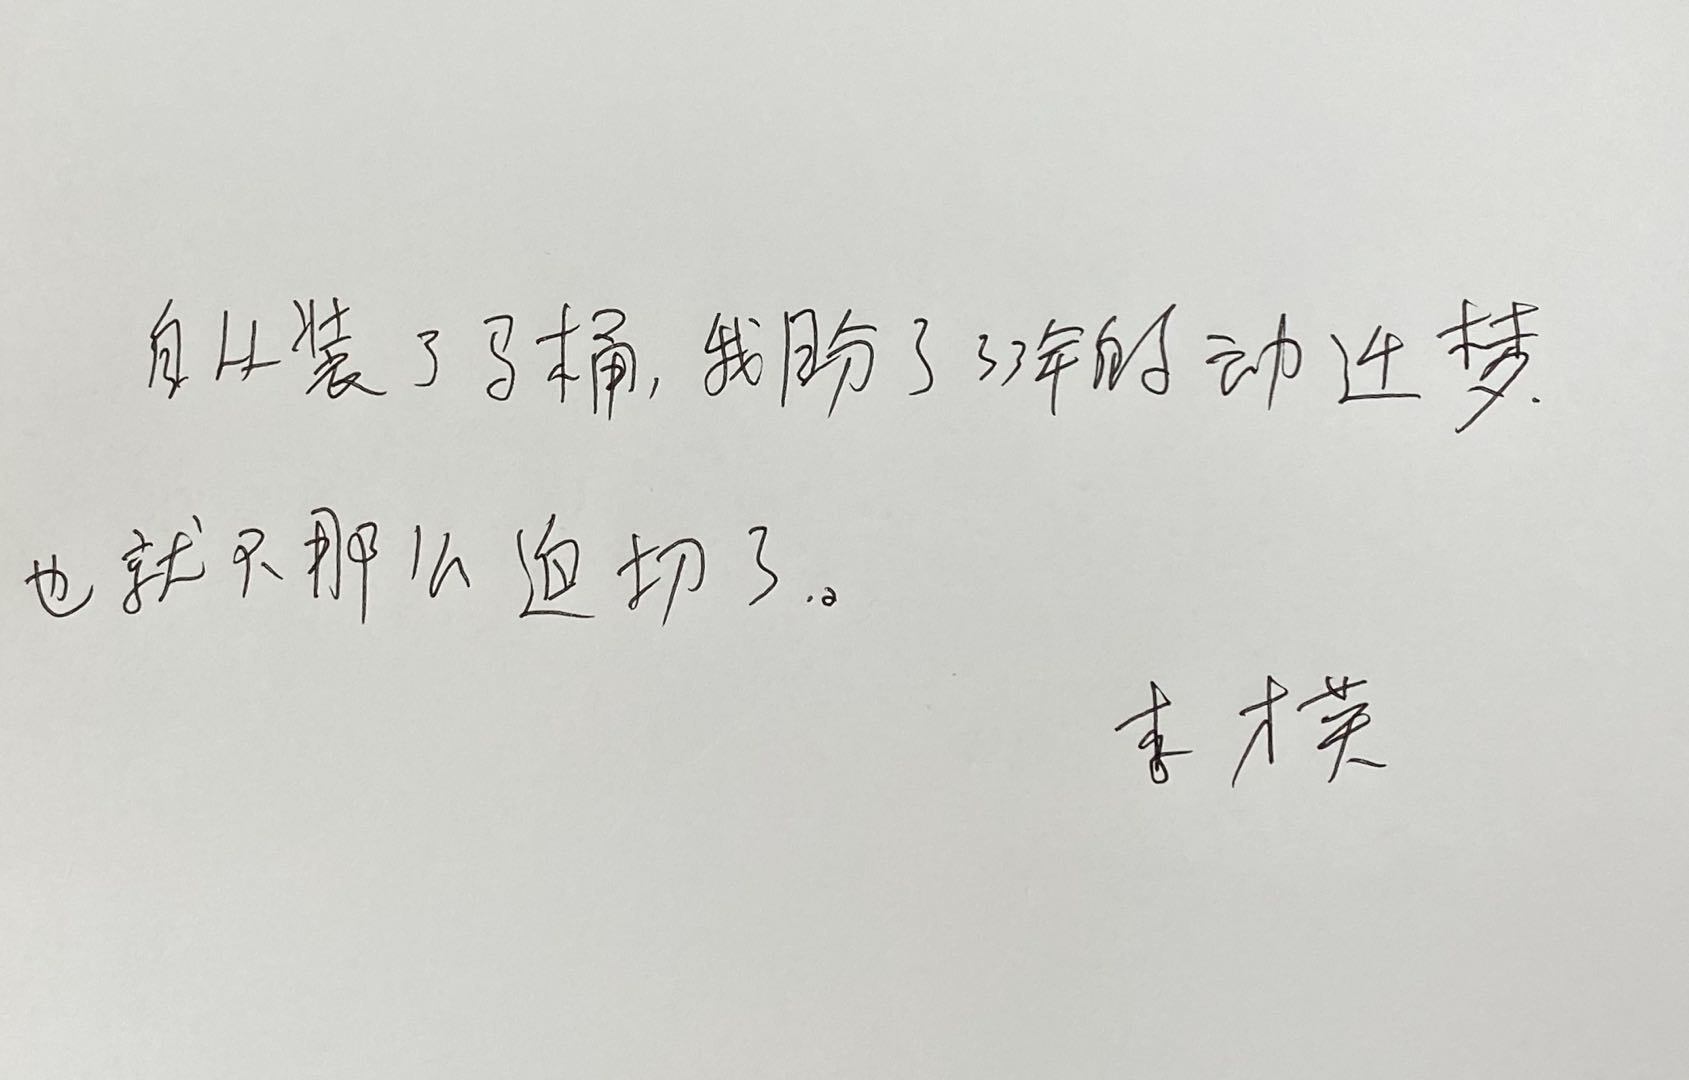 自从装了马桶，我盼了33年的动迁梫.
也就不那么迫切了.。
李才英